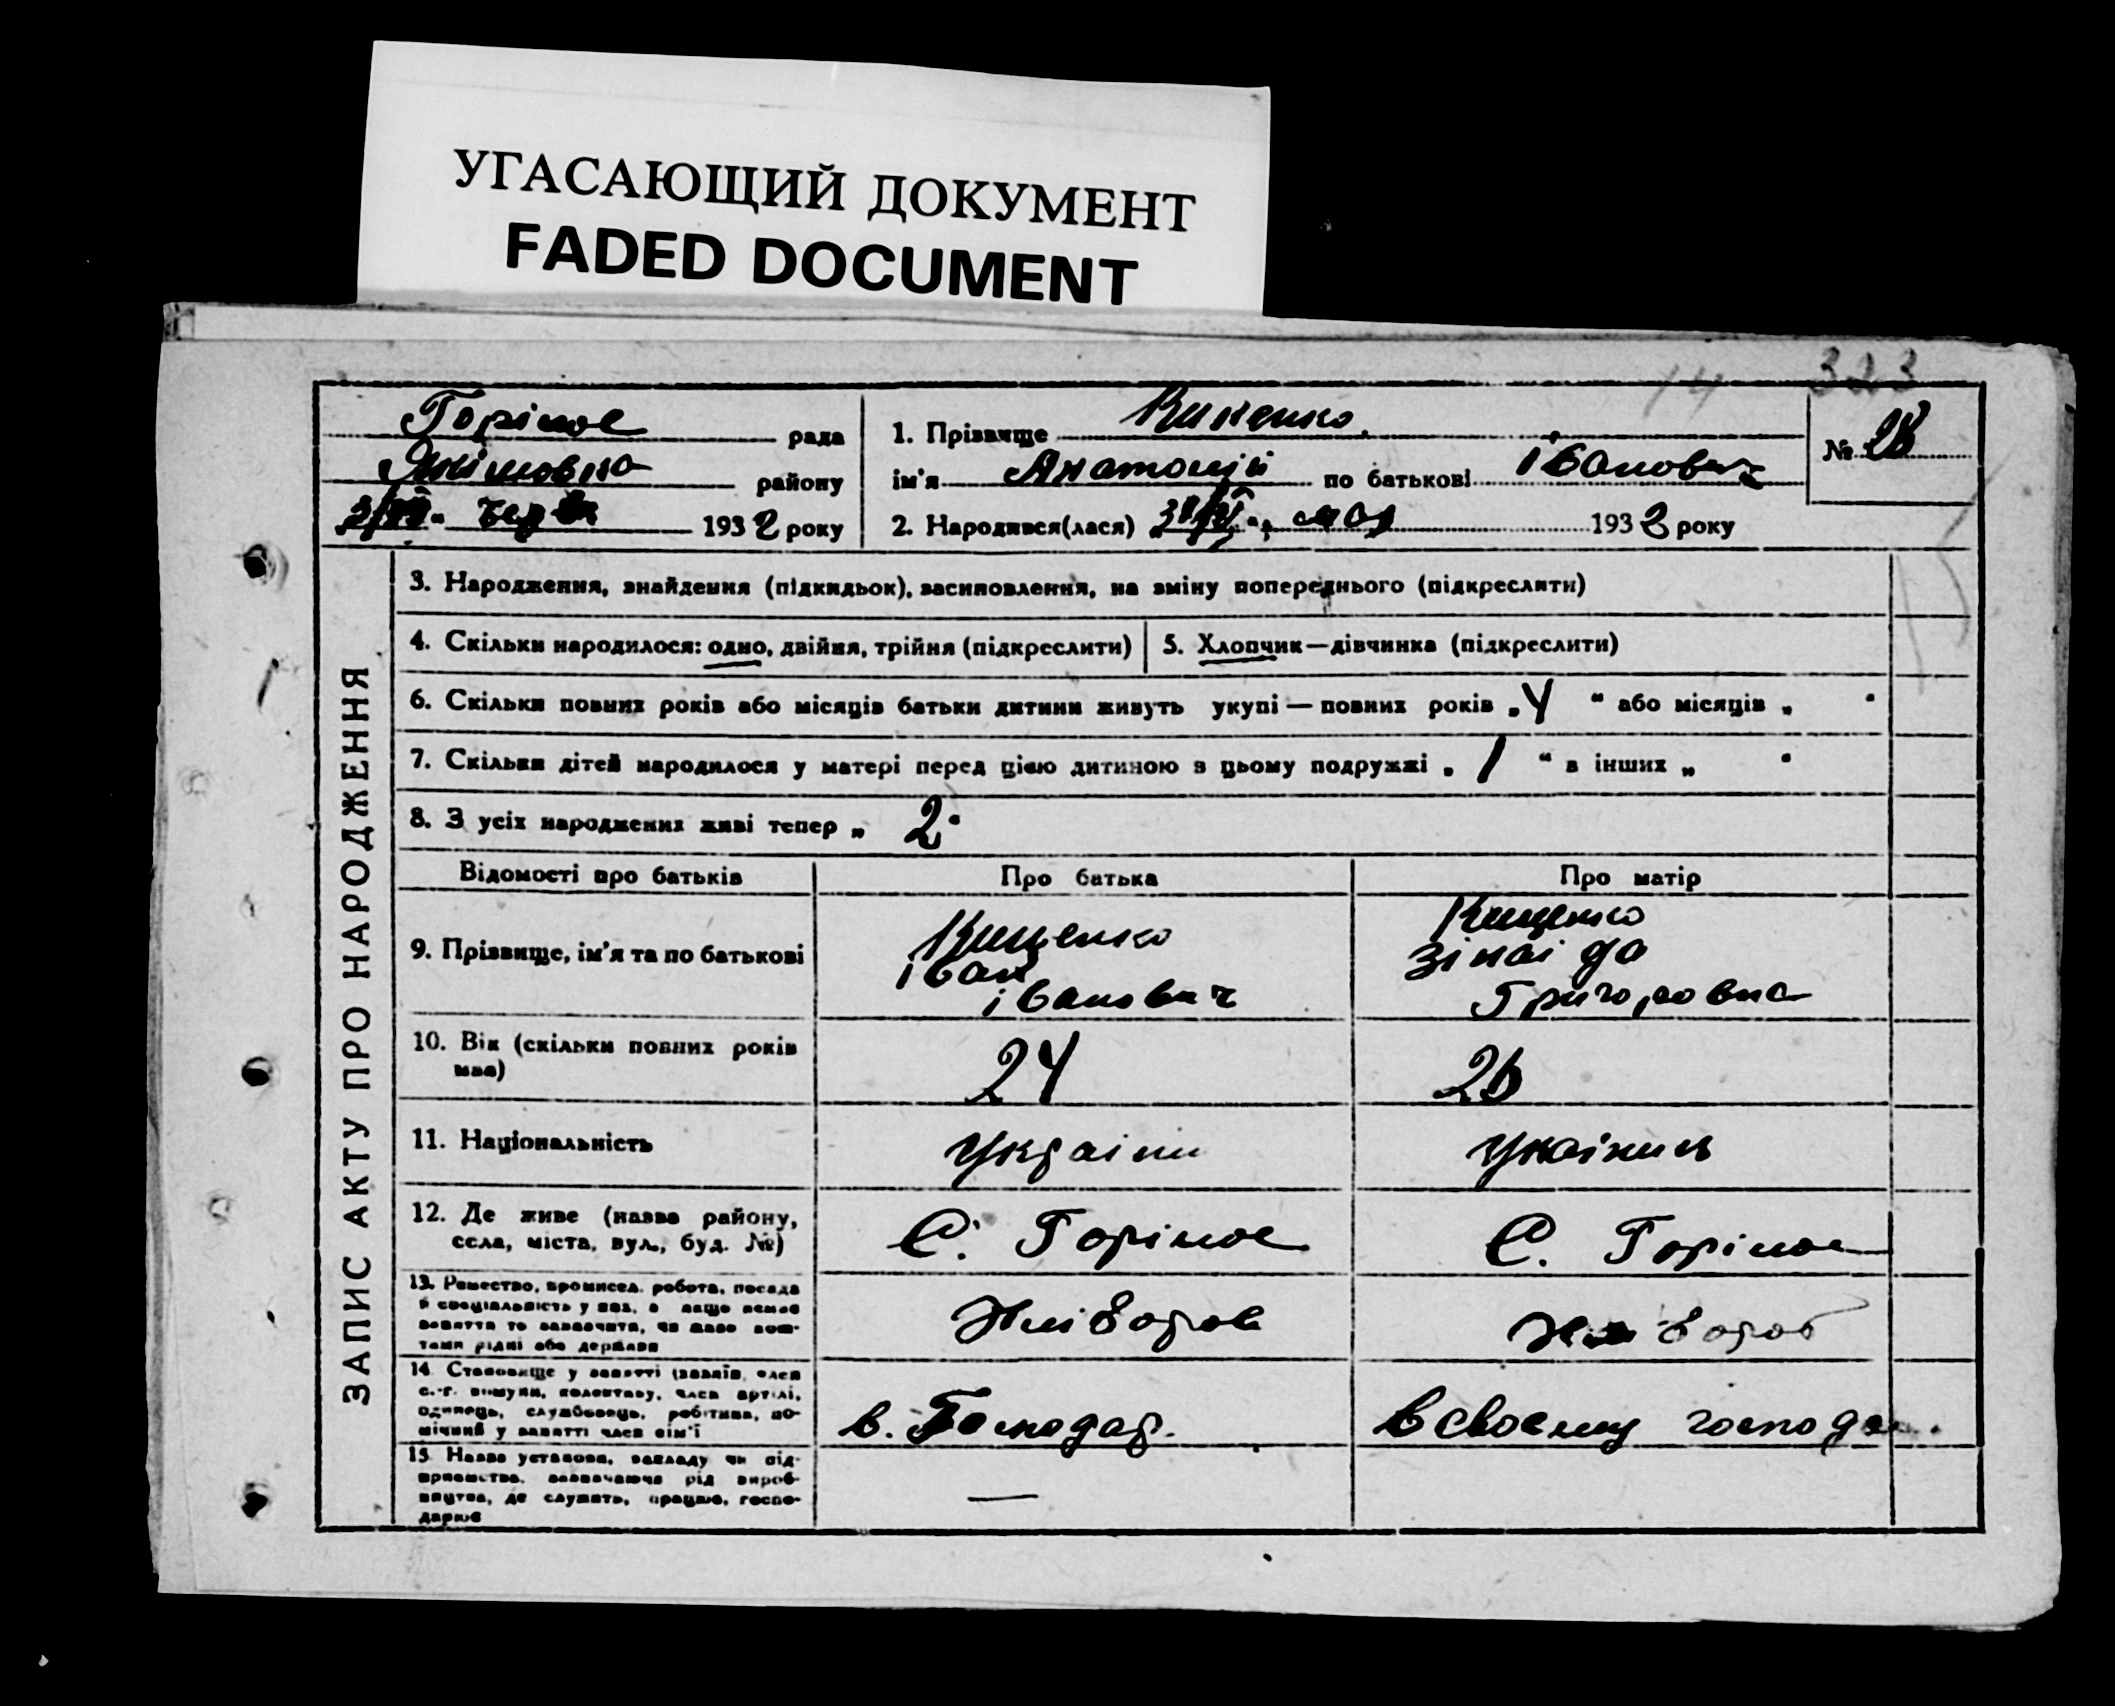 УГАСАЮЩИЙ ДОКУМЕНТ
FADED DOCUMENT
323
Горіное рада
району
1932 року
1. Прізвище
ім'я Анатолій по батькові івановіч
2. Народився(лася) мая 1932 року
№ 28
ЗАПИС АКТУ ПРО НАРОДЖЕННЯ
3. Народження, знайдення (підкидьок), засиновлення, на зміну попереднього (підкреслити)
4. Скільки народилося: одно, двійня, трійня (підкреслити)
5. Хлопчик—дівчинка (підкреслити)
6. Скільки повних років або місяців батьки дитини живуть укупі — повних років „4“ або місяців „ “
7. Скільки дітей народилося у матері перед цією дитиною в цьому подружжі „1“ в інших „ “
8. З усіх народжених живі тепер „2“
Відомості про батьків
Про батька
Про матір
9. Прізвище, ім'я та по батькові
Кищенко
іван
іванович
Кищенко
Зінаіда
Григоровна
10. Вік (скільки повних років
має)
24
26
11. Національність
україни
12. Де живе (назва району,
села, міста, вул., буд. №)
С. Горіное
С. Горіное
13. Ремество, промисел, робота, посада
й спеціальність у них, а якщо немає
заняття то зазначити, чи дано кош-
тами рідні або держави
Хлібороб
Хлібороб
14. Становище у занятті (хазяїн, член
с.-г. комуни, колективу, член артілі,
одинець, службовець, робітник, по-
мічний у занятті член сім'ї
в. Господар.
в своему господа
15. Назва установи, закладу чи під-
приємства, зазначаючи рід вироб-
ництва, де служить, працює, госпо-
дарює
—